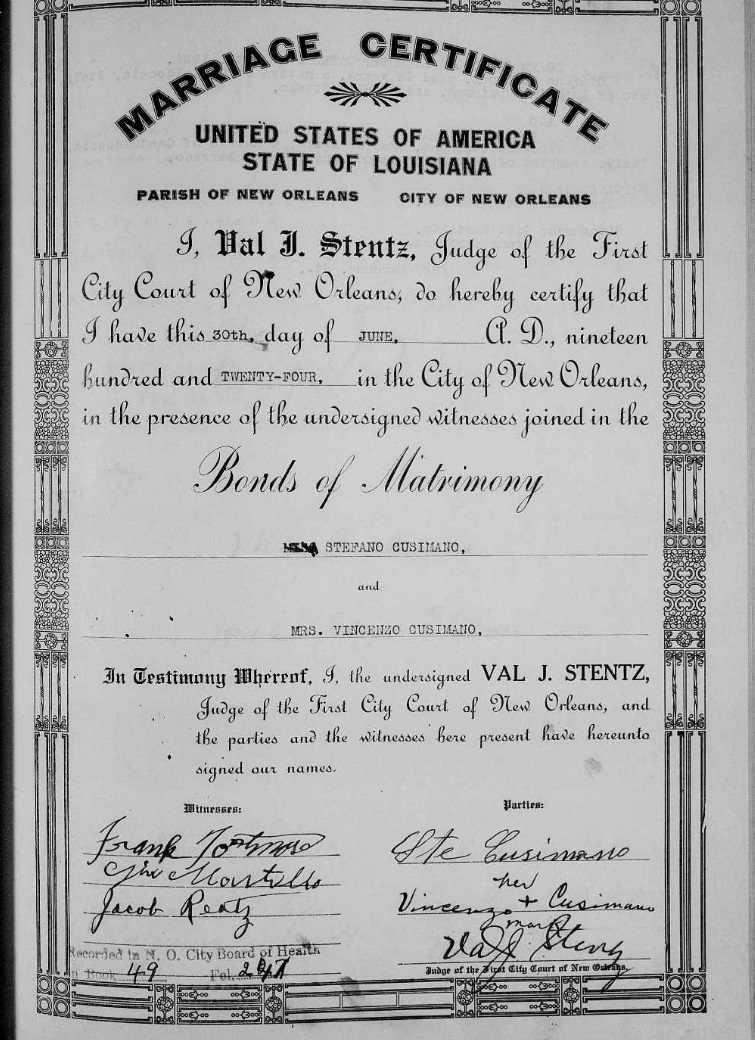 MARRIAGE CERTIFICATE
UNITED STATES OF AMERICA
STATE OF LOUISIANA
PARISH OF NEW ORLEANS CITY OF NEW ORLEANS
I, Val J. Stentz, Judge of the First
City Court of New Orleans, do hereby certify that
I have this 30th, day of JUNE, A. D., nineteen
hundred and TWENTY-FOUR, in the City of New Orleans,
in the presence of the undersigned witnesses joined in the
Bonds of Matrimony
STEFANO CUSIMANO,
and
MRS. VINCENZO CUSIMANO,
In Testimony Whereof, I, the undersigned VAL J. STENTZ,
Judge of the First City Court of New Orleans, and
the parties and the witnesses here present have hereunto
signed our names.
Witnesses: Parties:
Frank
Ste Cusimano
her
Jacob
Vincenzo + Cusimano
mark
Val J. Stentz
Judge of the First City Court of New Orleans.
Recorded in N. O. City Board of Health
Book 49 Fol.